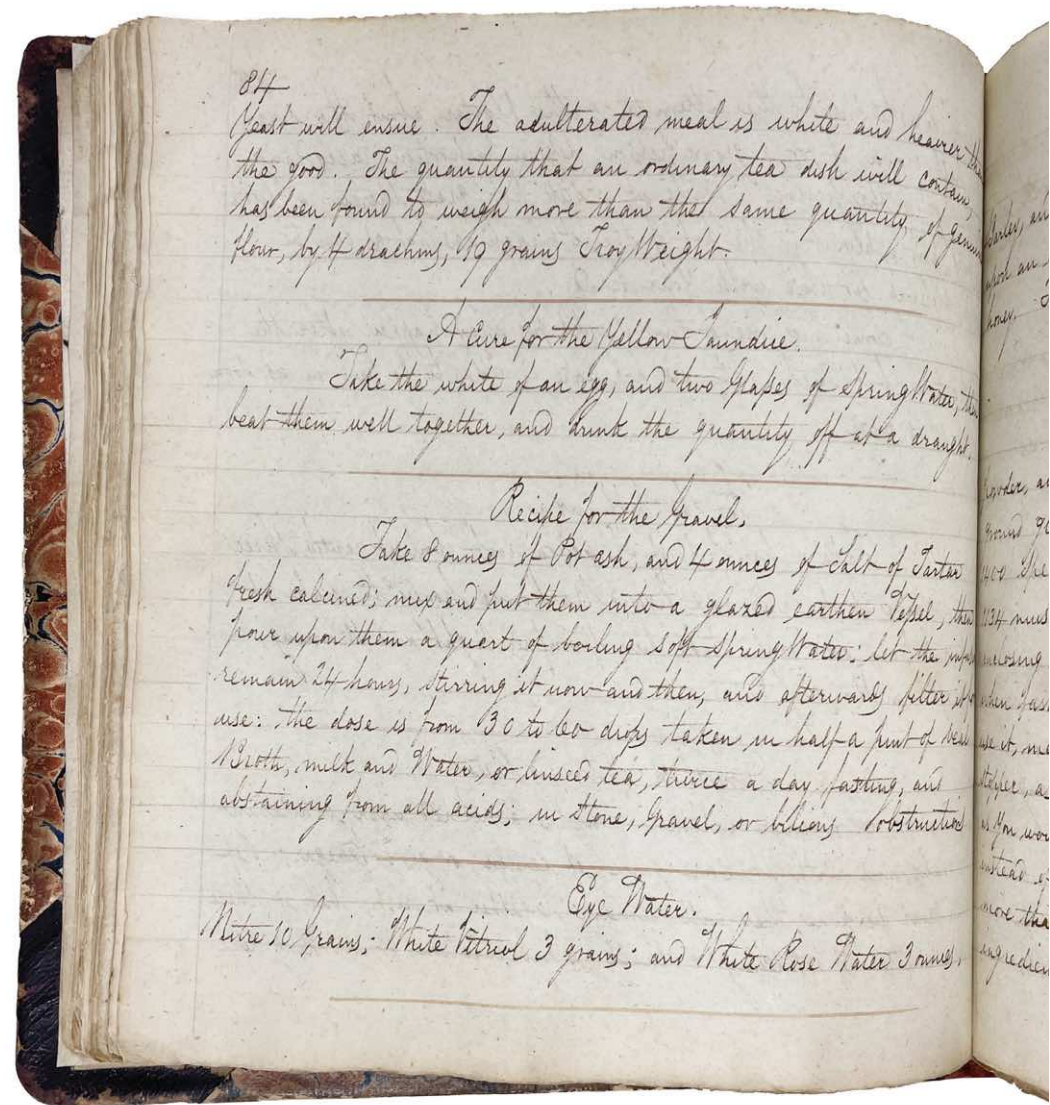 84
Yeast will ensue. The adulterated meal is white and heavier than
the good. The quantity that an ordinary tea dish will contain,
has been found to weigh more than the same quantity of genuin
flour, by 4 drachms, 19 grains Troy Weight.
A Cure for the Yellow Jaundice.
Take the white of an egg, and two Glasses of Spring Water, then
beat them well together, and drink the quantity off at a draught.
Recipe for the Gravel.
Take 8 ounces of Pot ash, and 4 ounces of Salt of Tartar
fresh calcined; mix and put them into a glazed earthen Vessel, then
pour upon them a quart of boiling soft Spring Water: let the infus
remain 24 hours, stirring it now and then, and afterwards filter it
use: the dose is from 30 to 60 drops taken in half a pint of
Broth, milk and Water, or linseed tea, twice a day fasting, and
abstaining from all acids; in Stone, Gravel, or bilious obstruction
Eye Water.
Nitre 10 Grains; White Vitriol 3 grains; and White Rose Water 3 ounces.
Barley, an
upon an
honey.
Powder, a
Ground
1234 mus
enclosing
when fas
use it, m
stopper, a
as You wou
instead of
more tha
ingredien